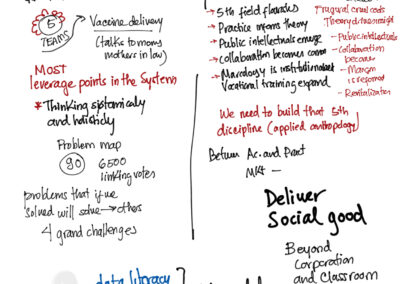 5
TEAMS
Vaccine delivery
(talks to mony
mothers in law)
Most
leverage points in the System
* Thinking systemicaly
and holisticly
Problem map
90
6500
linking votes
problems that if we
solved will solve → others
4 grand challenges
→ 5th field flourishes
→ Practice informs theory
→ Public intellectuals emerge
→ Collaboration becomes comm
Vocational training expand
- Public intellectuals
- Collaboration
become
is reformed
- Revitalization
We need to build that 5th
discipline (applied anthropology)
Between Ac. and Pract
MKt —
Deliver
Social good
Beyond
Corporation
and Classroom
data literacy